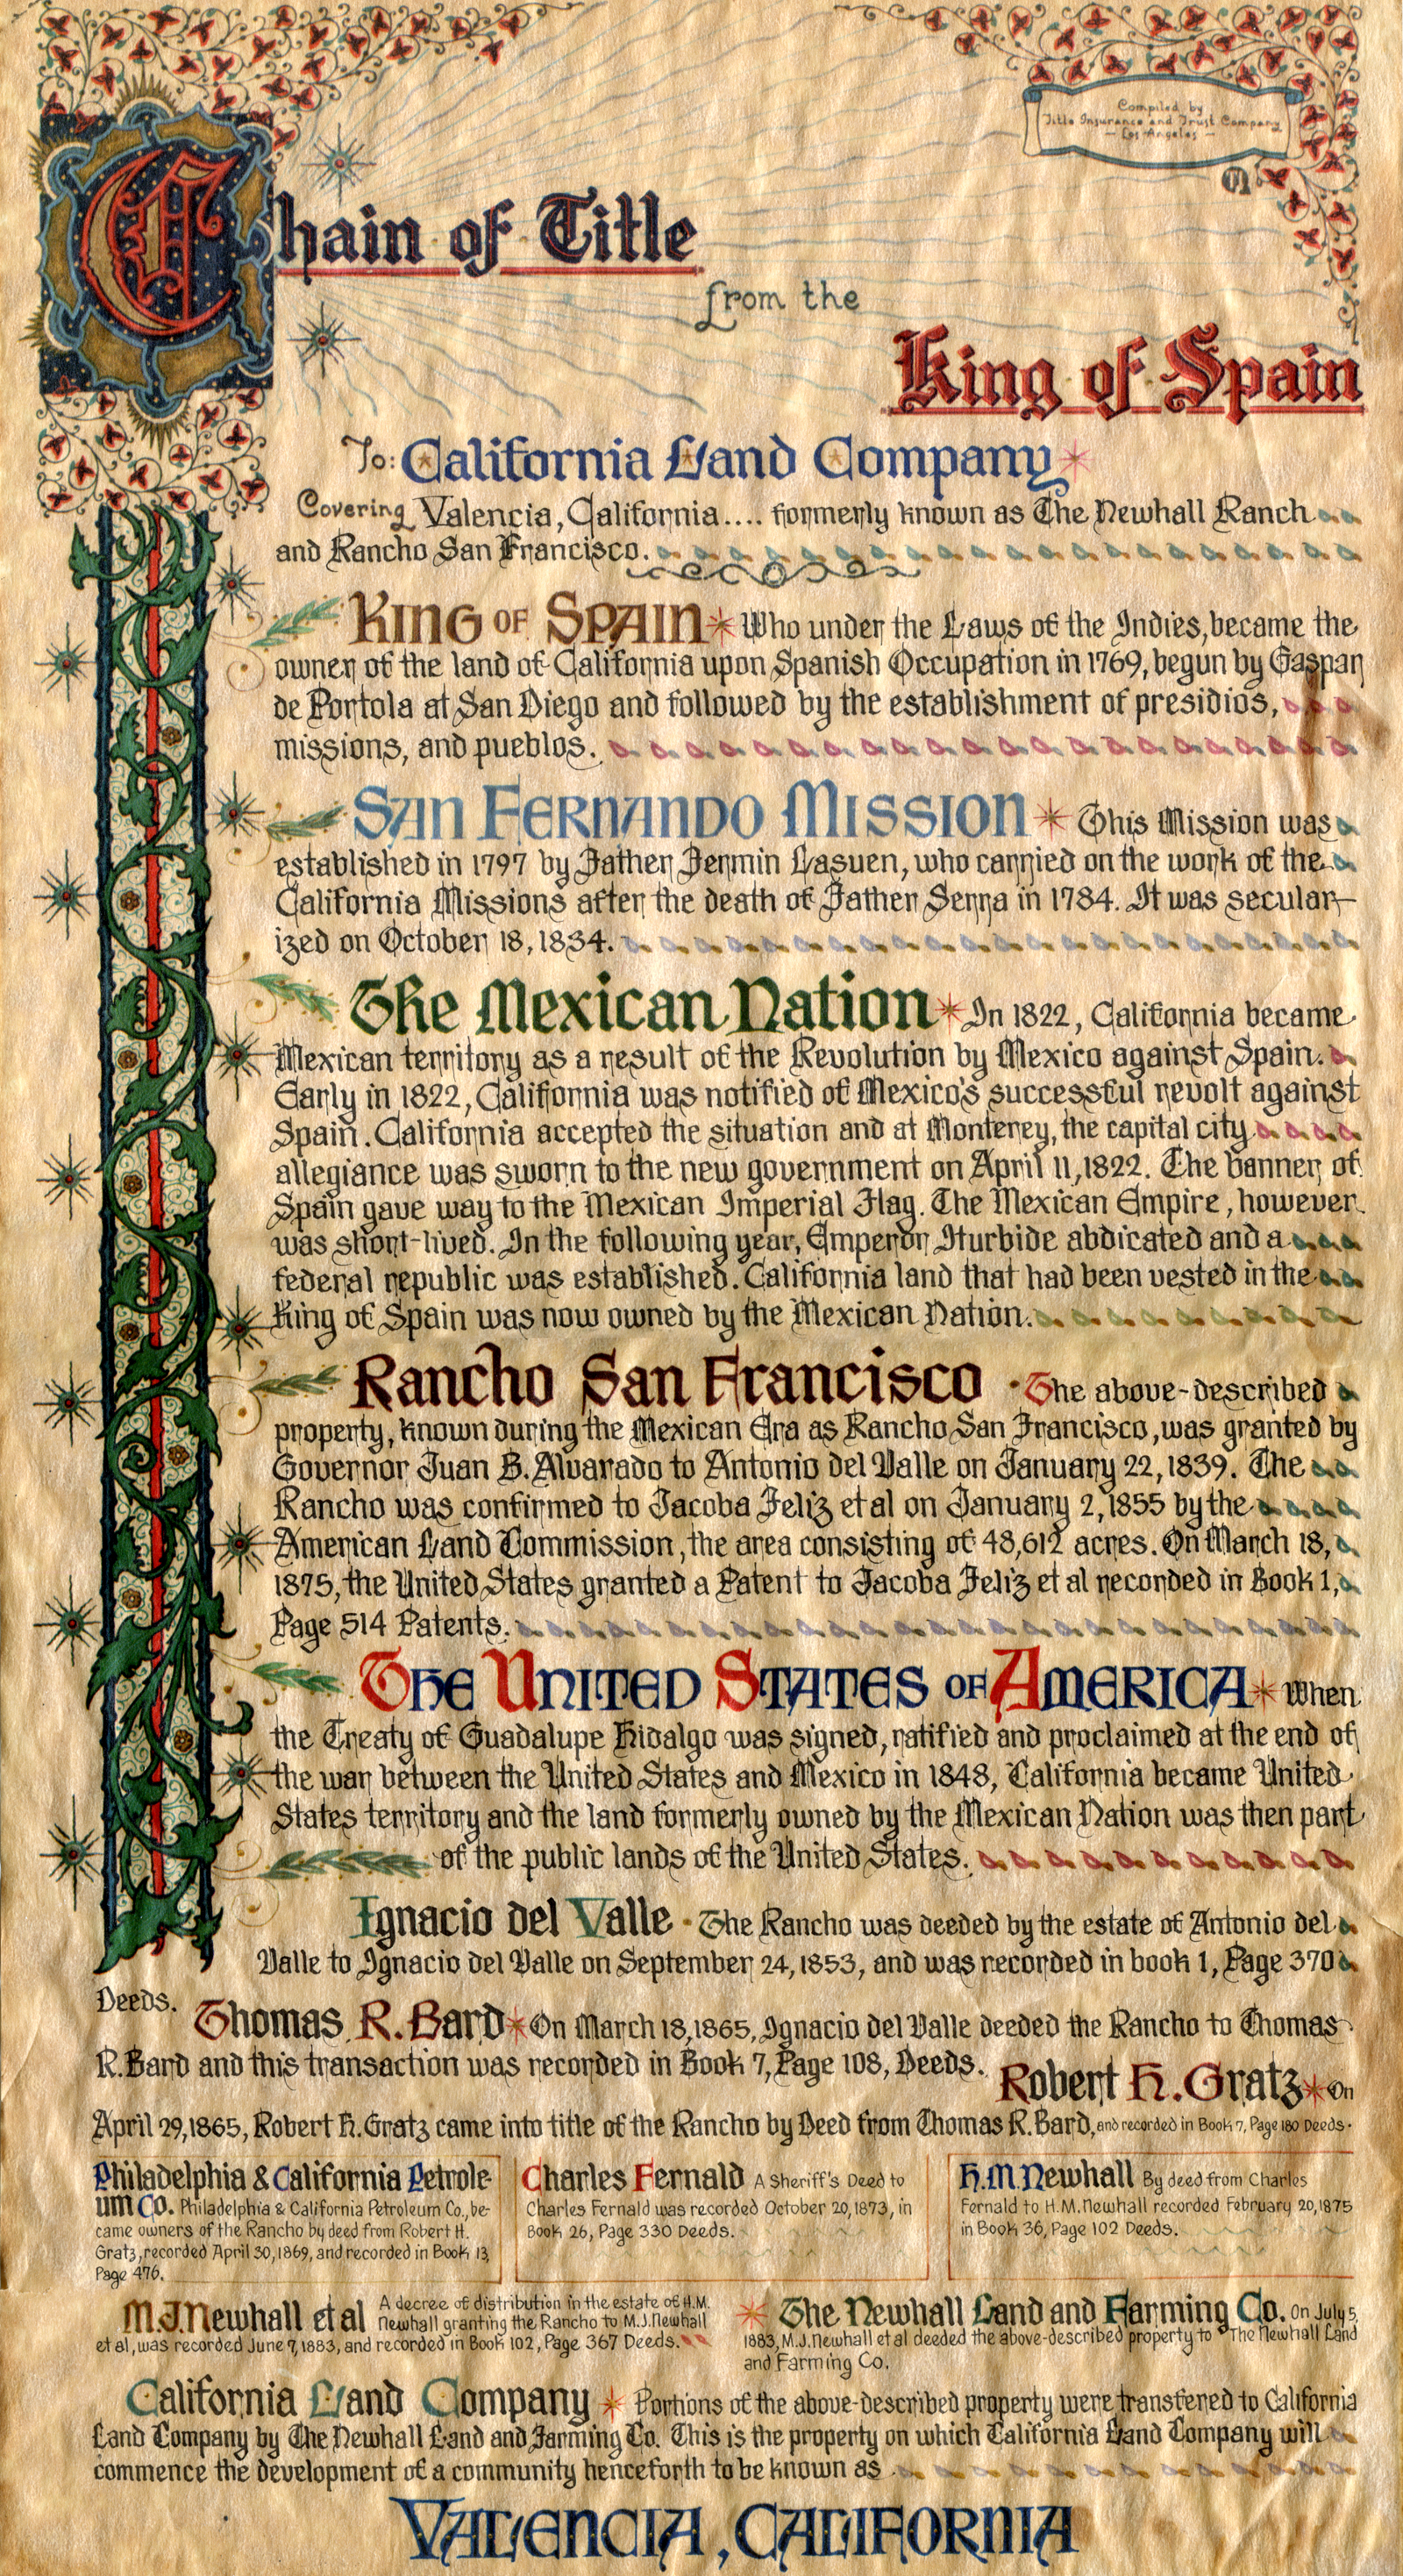 Compiled by
Title Insurance and Trust Company
— Los Angeles —
Chain of Title
from the
King of Spain
To: California Land Company
Covering Valencia, California.... formerly known as The Newhall Ranch
and Rancho San Francisco.
KING OF SPAIN Who under the Laws of the Indies, became the
owner of the land of California upon Spanish Occupation in 1769, begun by Gaspar
de Portola at San Diego and followed by the establishment of presidios,
missions, and pueblos.
SAN FERNANDO MISSION This Mission was
established in 1797 by Father Fermin Lasuen, who carried on the work of the
California Missions after the death of Father Serra in 1784. It was secular-
ized on October 18, 1834.
The Mexican Nation In 1822, California became
Mexican territory as a result of the Revolution by Mexico against Spain.
Early in 1822, California was notified of Mexico's successful revolt against
Spain. California accepted the situation and at Monterey, the capital city
allegiance was sworn to the new government on April 11, 1822. The banner of
Spain gave way to the Mexican Imperial Flag. The Mexican Empire, however
was short-lived. In the following year, Emperor Iturbide abdicated and a
federal republic was established. California land that had been vested in the
King of Spain was now owned by the Mexican Nation.
Rancho San Francisco · The above-described
property, known during the Mexican Era as Rancho San Francisco, was granted by
Governor Juan B. Alvarado to Antonio del Valle on January 22, 1839. The
Rancho was confirmed to Jacoba Feliz et al on January 2, 1855 by the
American Land Commission, the area consisting of 48,612 acres. On March 18,
1875, the United States granted a Patent to Jacoba Feliz et al recorded in Book 1,
Page 514 Patents.
THE UNITED STATES OF AMERICA When
the Treaty of Guadalupe Hidalgo was signed, ratified and proclaimed at the end of
the war between the United States and Mexico in 1848, California became United
States territory and the land formerly owned by the Mexican Nation was then part
of the public lands of the United States.
Ignacio del Valle · The Rancho was deeded by the estate of Antonio del
Valle to Ignacio del Valle on September 24, 1853, and was recorded in book 1, Page 370
Deeds.
Thomas R. Bard On March 18, 1865, Ignacio del Valle deeded the Rancho to Thomas
R. Bard and this transaction was recorded in Book 7, Page 108, Deeds.
Robert H. Gratz On
April 29, 1865, Robert H. Gratz came into title of the Rancho by Deed from Thomas R. Bard, and recorded in Book 7, Page 180 Deeds.
Philadelphia & California Petrole-
um Co. Philadelphia & California Petroleum Co., be-
came owners of the Rancho by deed from Robert H.
Gratz, recorded April 30, 1869, and recorded in Book 13,
Page 476.
Charles Fernald A Sheriff's Deed to
Charles Fernald was recorded October 20, 1873, in
Book 26, Page 330 Deeds.
H.M. Newhall By deed from Charles
Fernald to H.M. Newhall recorded February 20, 1875
in Book 36, Page 102 Deeds.
M.J. Newhall et al A decree of distribution in the estate of H.M.
Newhall granting the Rancho to M.J. Newhall
et al, was recorded June 7, 1883, and recorded in Book 102, Page 367 Deeds.
The Newhall Land and Farming Co. On July 5,
1883, M.J. Newhall et al deeded the above-described property to The Newhall Land
and Farming Co.
California Land Company Portions of the above-described property were transfered to California
Land Company by The Newhall Land and Farming Co. This is the property on which California Land Company will
commence the development of a community henceforth to be known as
VALENCIA, CALIFORNIA